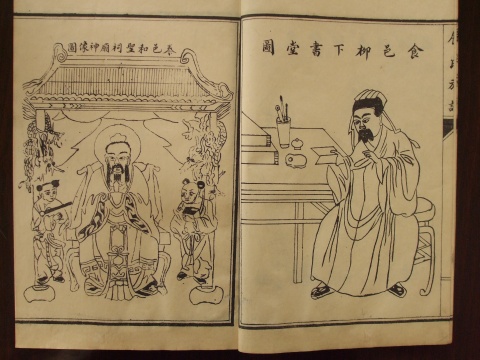 食邑柳下書堂圖
邑和聖祠廟神像圖